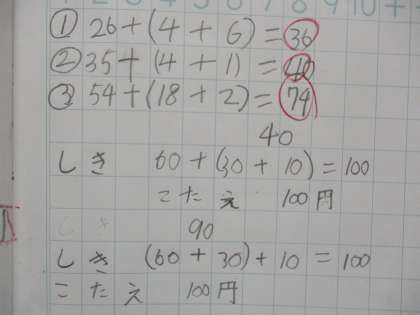 ① 26+(4+6)=36
② 35+(4+1)=40
③ 54+(18+2)=74
40
しき 60+(30+10)=100
こたえ 100円
90
しき (60+30)+10=100
こたえ 100円